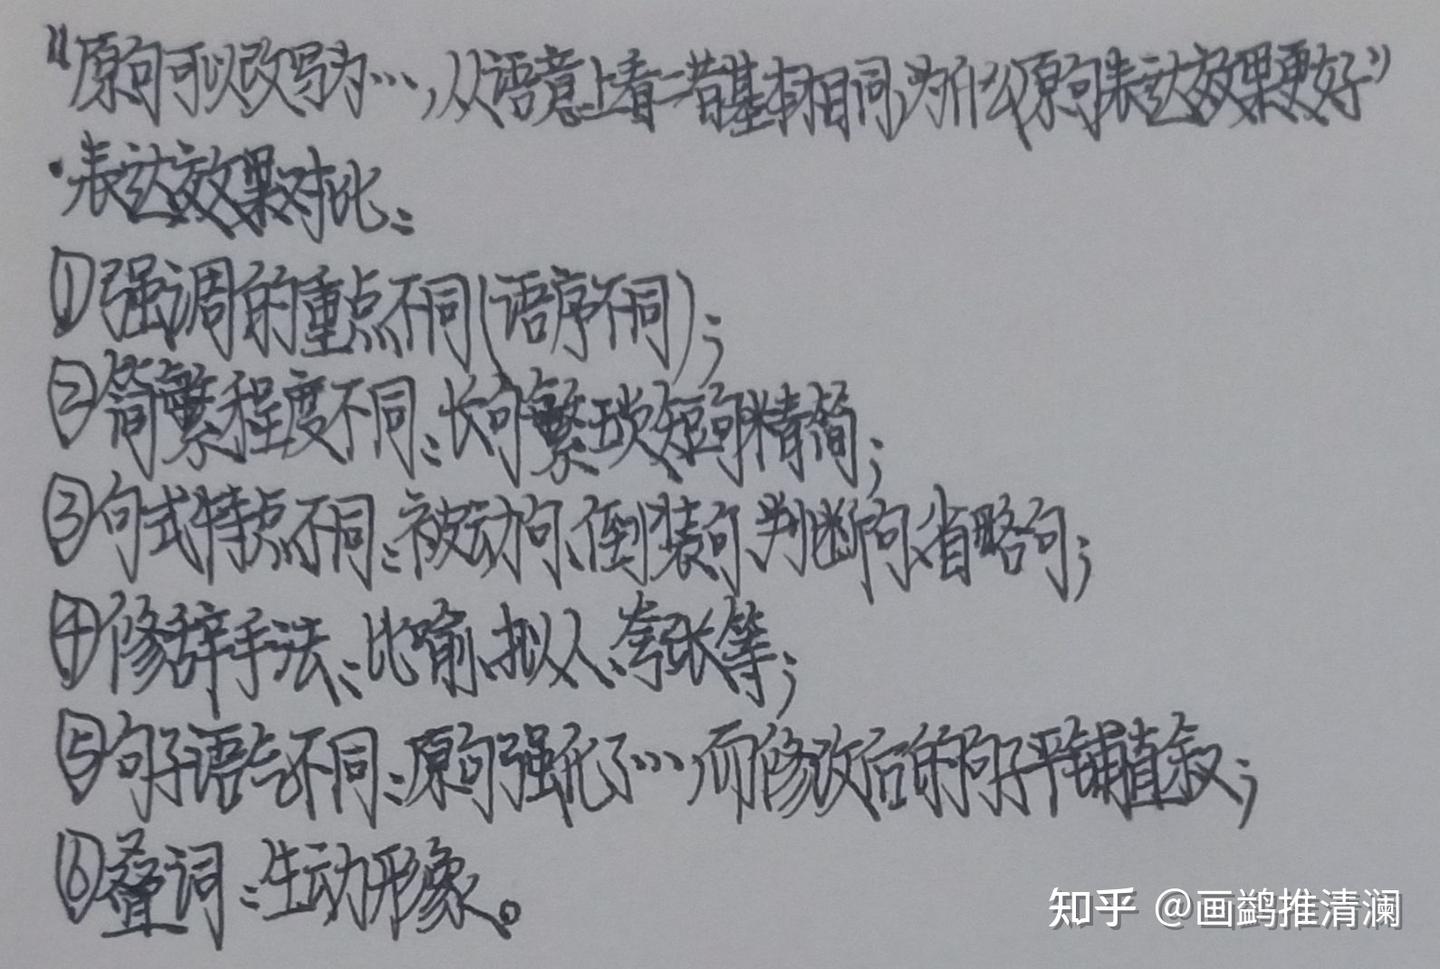 “原句可以改写为…，从语意上看二者基本相同，为什么原句表达效果更好”
·表达效果对比：
①强调的重点不同（语序不同）；
②简繁程度不同：长句繁琐短句精简；
③句式特点不同：被动句、倒装句、判断句、省略句；
④修辞手法：比喻、拟人、夸张等；
⑤句子语气不同：原句强化了…，而修改后的句子平铺直叙；
⑥叠词：生动形象。
知乎 @画鹢推清澜